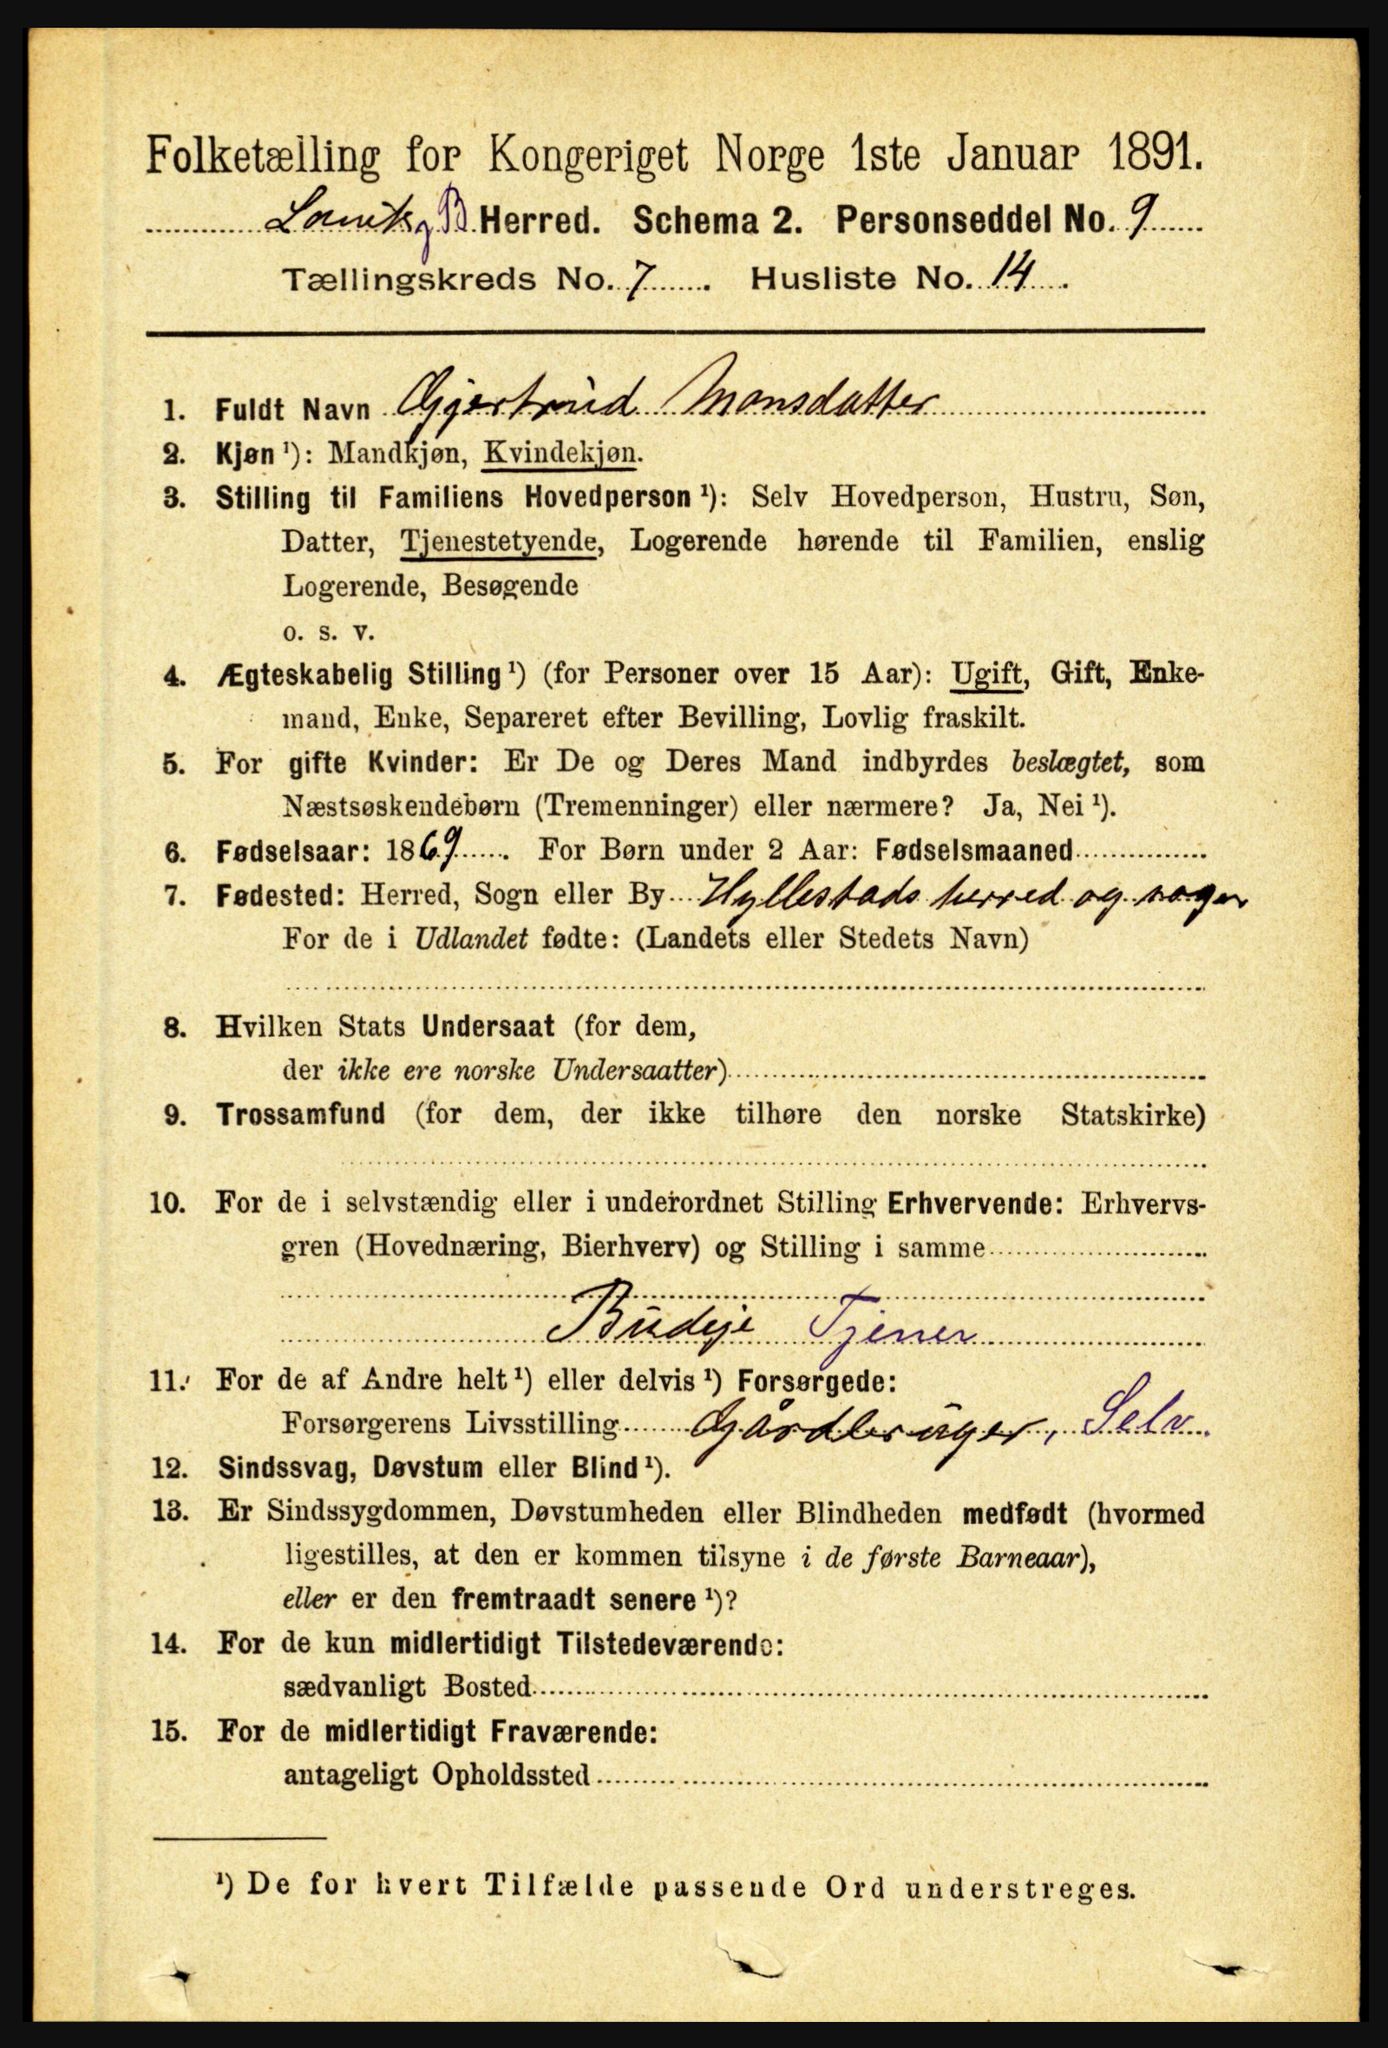 Folketælling for Kongeriget Norge 1ste Januar 1891.
Lavik og B. Herred. Schema 2. Personseddel No. 9
Tællingskreds No. 7. Husliste No. 14.
1. Fuldt Navn Gjertrud Monsdatter
2. Kjøn ¹): Mandkjøn, Kvindekjøn.
3. Stilling til Familiens Hovedperson ¹): Selv Hovedperson, Hustru, Søn,
Datter, Tjenestetyende, Logerende hørende til Familien, enslig
Logerende, Besøgende
o. s. v.
4. Ægteskabelig Stilling ¹) (for Personer over 15 Aar): Ugift, Gift, Enke-
mand, Enke, Separeret efter Bevilling, Lovlig fraskilt.
5. For gifte Kvinder: Er De og Deres Mand indbyrdes beslægtet, som
Næstsøskendebørn (Tremenninger) eller nærmere? Ja, Nei ¹).
6. Fødselsaar: 1869. For Børn under 2 Aar: Fødselsmaaned
7. Fødested: Herred, Sogn eller By Hyllestads herred og
For de i Udlandet fødte: (Landets eller Stedets Navn)
8. Hvilken Stats Undersaat (for dem,
der ikke ere norske Undersaatter)
9. Trossamfund (for dem, der ikke tilhøre den norske Statskirke)
10. For de i selvstændig eller i underordnet Stilling Erhvervende: Erhvervs-
gren (Hovednæring, Bierhverv) og Stilling i samme
Budeje Tjener
11. For de af Andre helt ¹) eller delvis ¹) Forsørgede:
Forsørgerens Livsstilling Gårdbruger, Selv.
12. Sindssvag, Døvstum eller Blind ¹).
13. Er Sindssygdommen, Døvstumheden eller Blindheden medfødt (hvormed
ligestilles, at den er kommen tilsyne i de første Barneaar),
eller er den fremtraadt senere ¹)?
14. For de kun midlertidigt Tilstedeværende:
sædvanligt Bosted
15. For de midlertidigt Fraværende:
antageligt Opholdssted
¹) De for hvert Tilfælde passende Ord understreges.